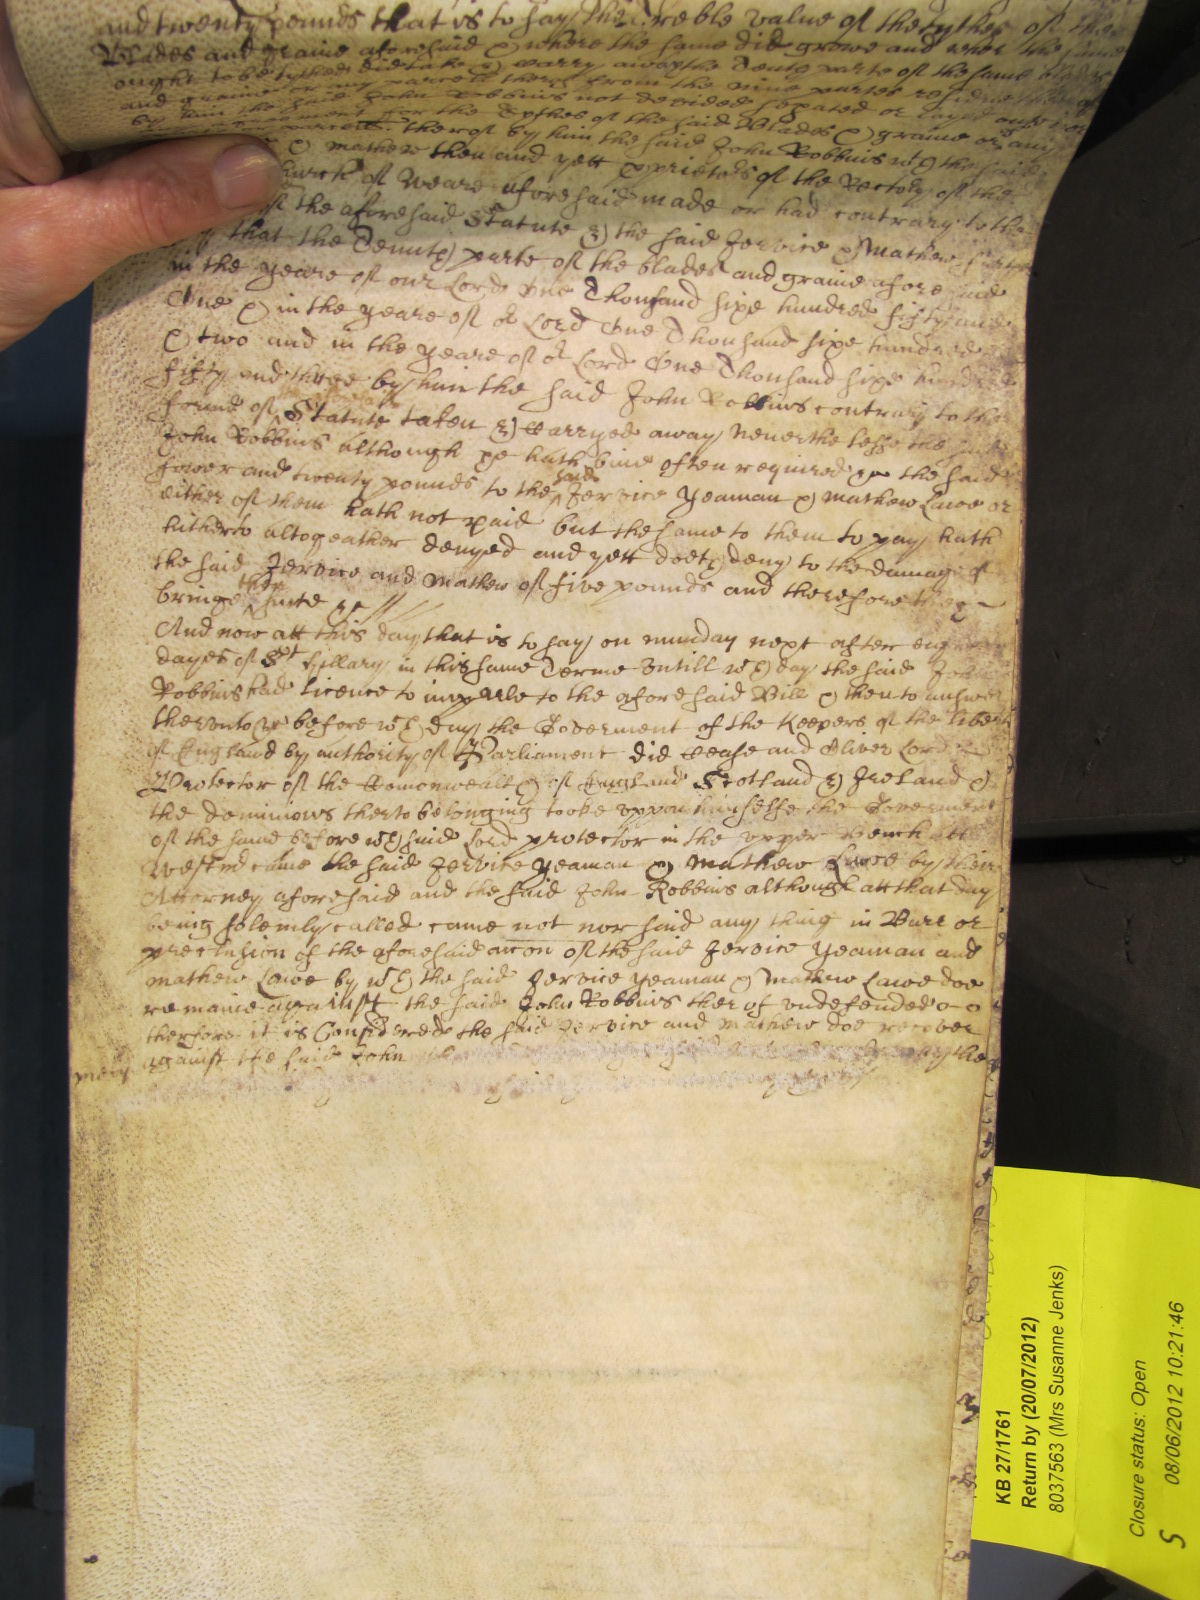 and twenty pounds that is to say the treble value of the tythes of the
Blades and graine aforesaid & where the same did growe and where the same
ought to be tythed did take & carry away the Tenth parte of the same blades
and graine or any parcell therof from the nine partes residue therof
by him the said John Robbins not devided sepated or layd out
for the Tythes of the said Blades & graine or any
parcell therof by him the said John Robbins wth the said
& Mathew then and yett pprietors of the Rectory of the
Church of Weare aforesaid made or had contrary to the
of the aforesaid Statute & the said Jervice & Mathew
that the Tenth parte of the blades and graine aforesaid
in the yeare of our Lord One Thousand sixe hundred fifty and
One & in the yeare of or Lord One Thousand sixe hundred
& two and in the yeare of or Lord One Thousand sixe hundred
fifty and three by him the said John Robbins contrary to the
forme of Statute taken & carryed away Neverthelesse the said
John Robbins although he hath bine often required ye the said
fower and twenty pounds to the said Jervice Yeaman & Mathew Lawe or
either of them hath not paid but the same to them to pay hath
hitherto altogeather denyed and yett doeth deny to the damage of
the said Jervice and Mathew of five pounds and therefore they
bringe their suite &c
And now att this day that is to say on munday next after eight
dayes of St Hillary in this same Terme Untill wch day the said John
Robbins had licence to imparle to the aforesaid Bill & then to answer
therunto &c before wch day the Goverment of the Keepers of the liberty
of England by authority of Parliament did cease and Oliver Lord
Protector of the Comonwealth of England Scotland & Ireland &
the dominions therto belonging tooke uppon himselfe the Goverment
of the same before wch said Lord protector in the upper Bench att
Westmr came the said Jervice Yeaman & Mathew Lawe by their
Attorney aforesaid and the said John Robbins although att that day
being solemly called came not nor said any thing in Barr or
preclusion of the aforesaid accon of the said Jervice Yeaman and
Mathew Lawe by wch the said Jervice Yeaman & Mathew Lawe doe
remaine against the said John Robbins therof undefended
therfore it is Considered the said Jervice and Mathew doe recover
against the said John
KB 27/1761
Return by (20/07/2012)
8037563 (Mrs Susanne Jenks)
Closure status: Open
S 08/06/2012 10:21:46